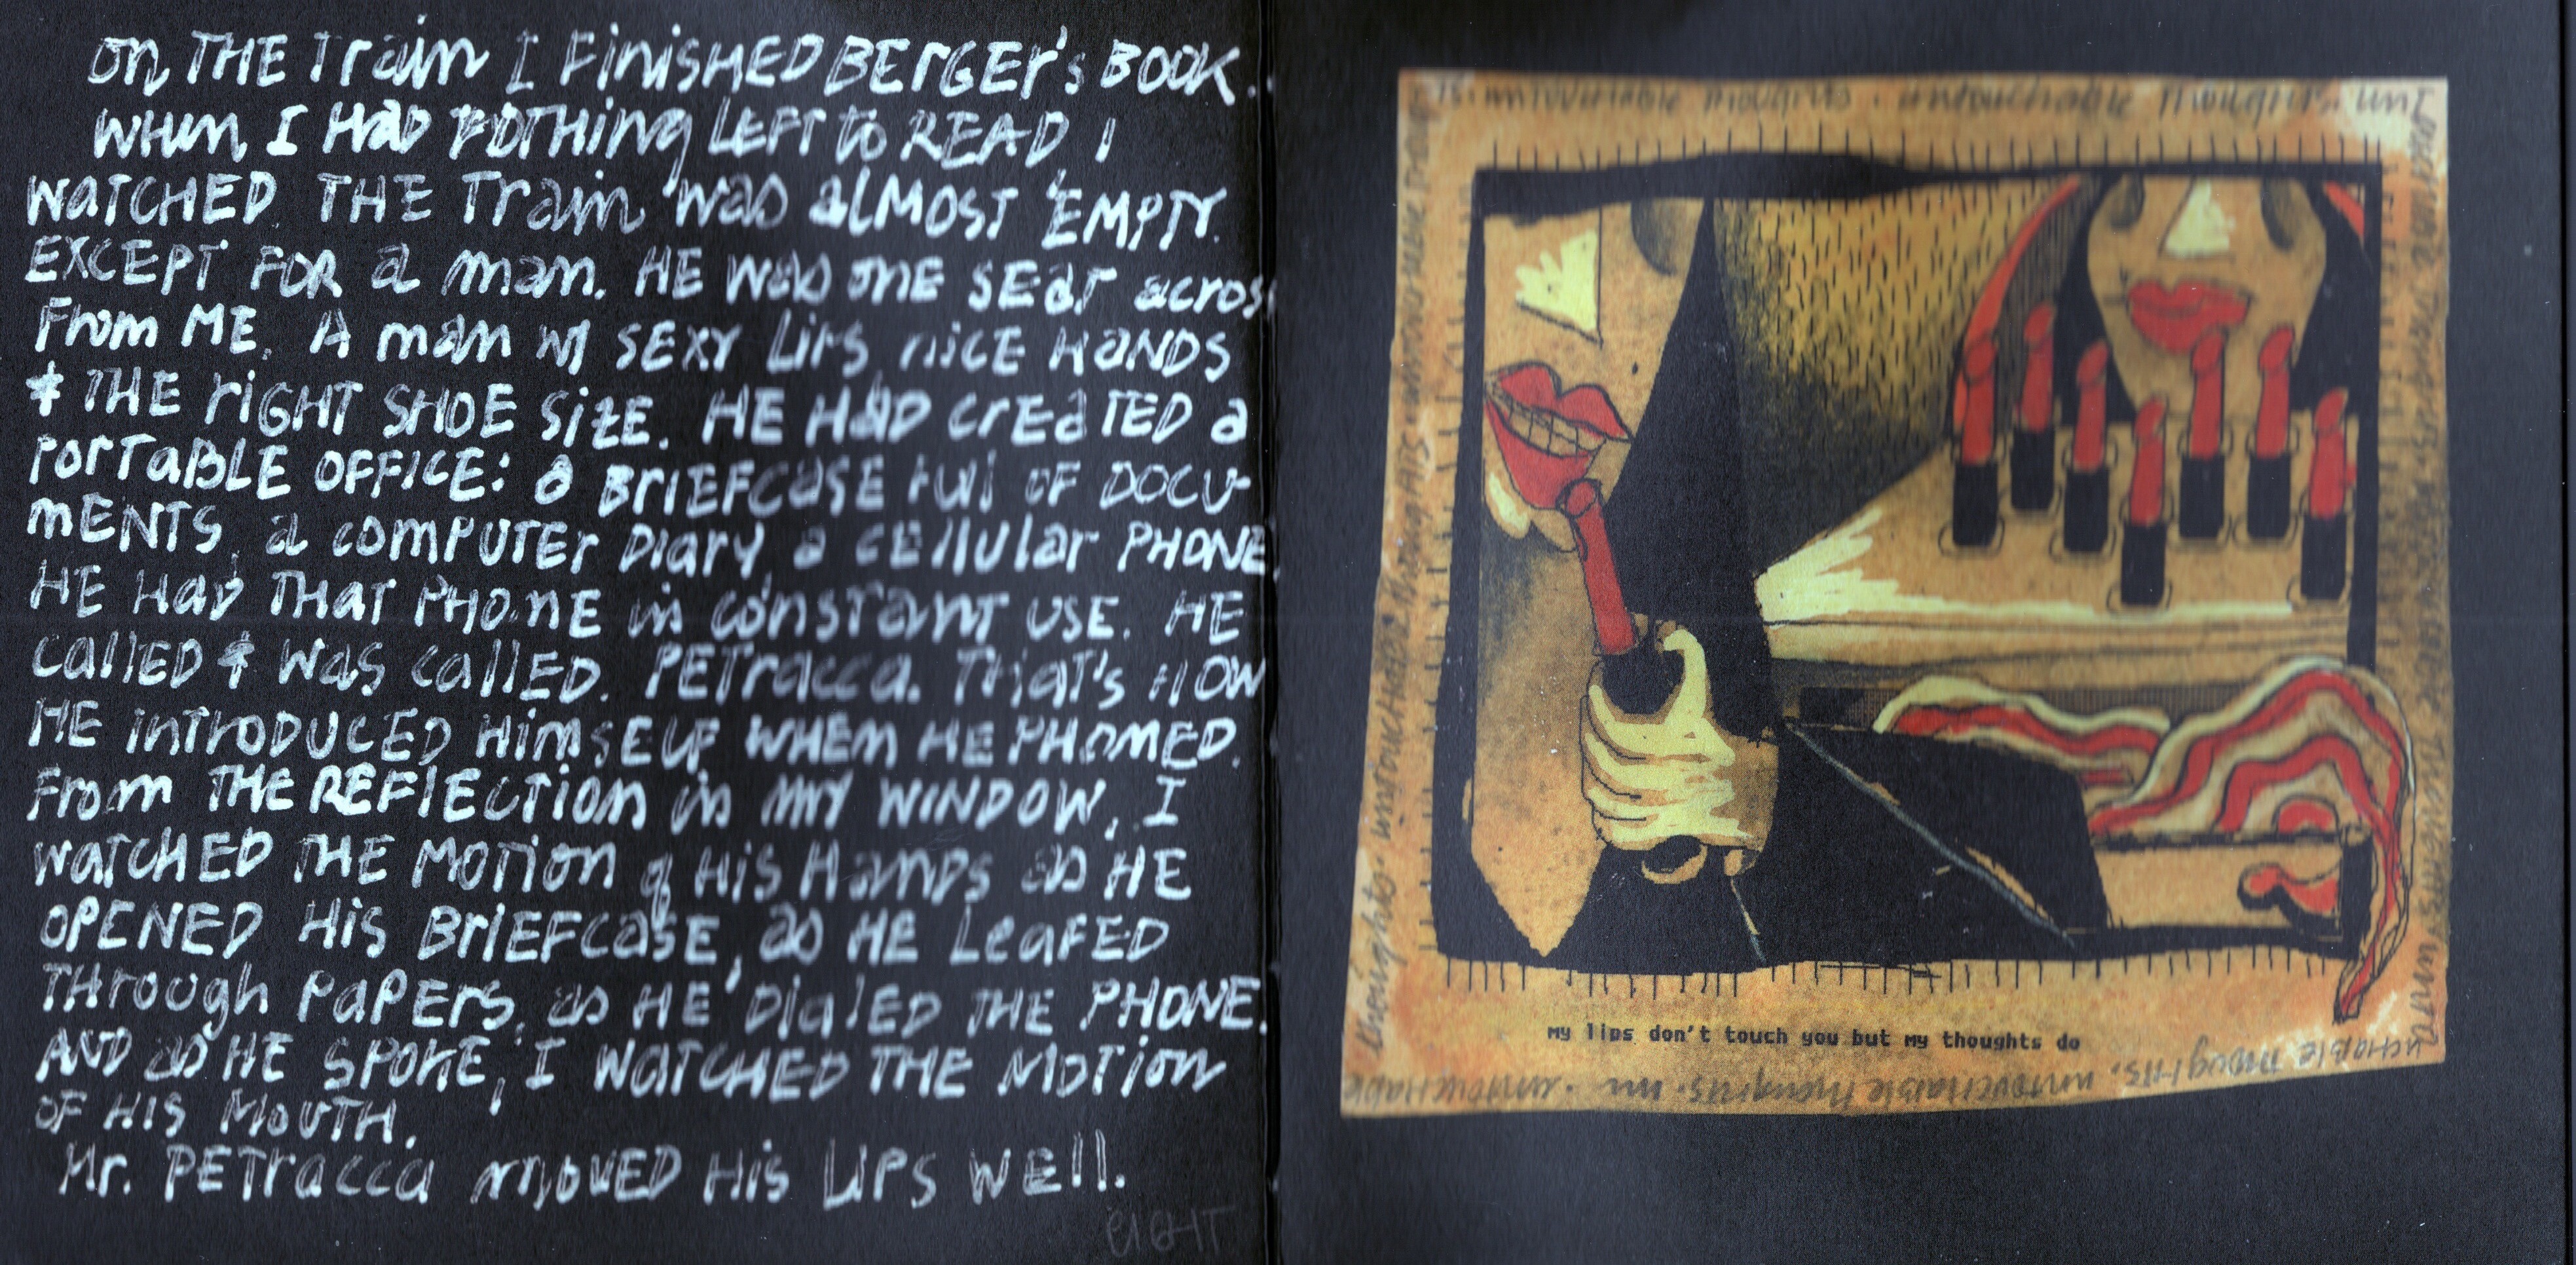 On THE Train I FinisHED BErGEr's BOOK.
WHEn I HaD nOTHinG LEFT to READ, I
WaTCHED. THE Train was alMOST EMPTY.
EXCEPT FOR a man. HE was onE sEaT across
From ME. A man w/ SEXY Lips, nicE HaNDS
& THE riGHT SHOE SizE. HE HaD crEaTED a
PorTaBLE OFFICE: a BriEFcasE full of DOCU-
mENTS, a compUTEr Diary, a cEllular PHONE.
HE HaD THaT PHOnE in constanT USE. HE
callED & was callED. PETracca. THaT's HOW
HE inTroDUCED HimsELF WHEn HE PHOnED.
From THE REFlECTiOn in my WiNDOW, I
WaTCHED THE MOTiOn of His HanDs as HE
OPENED His BriEFcasE, as HE LeaFED
THrough PaPErs, as HE DialED THE PHONE.
AND as HE SPOKE, I WaTCHED THE MOTiOn
OF HIS MOUTH.
Mr. PETracca moVED His Lips WEll.
EIGHT
untouchable thoughts. untouchable thoughts. unt
untouchable thoughts.
my lips don't touch you but my thoughts do
untouchable thoughts. un
untouchable
thoughts. untouchable thoughts.